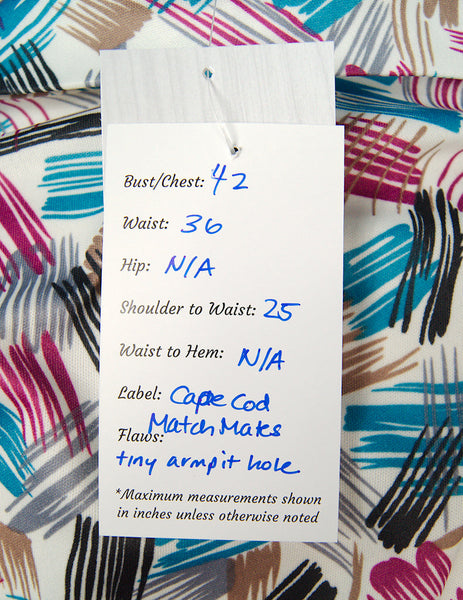 Bust/Chest: 42
Waist: 36
Hip: N/A
Shoulder to Waist: 25
Waist to Hem: N/A
Label: Cape Cod
Match Mates
Flaws:
tiny armpit hole
*Maximum measurements shown
in inches unless otherwise noted